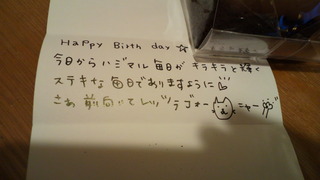 Happy Birth day ☆
今日からハジマル毎日がキラキラと輝く
ステキな毎日でありますように
さあ前向いてレッツラゴォー ニャー